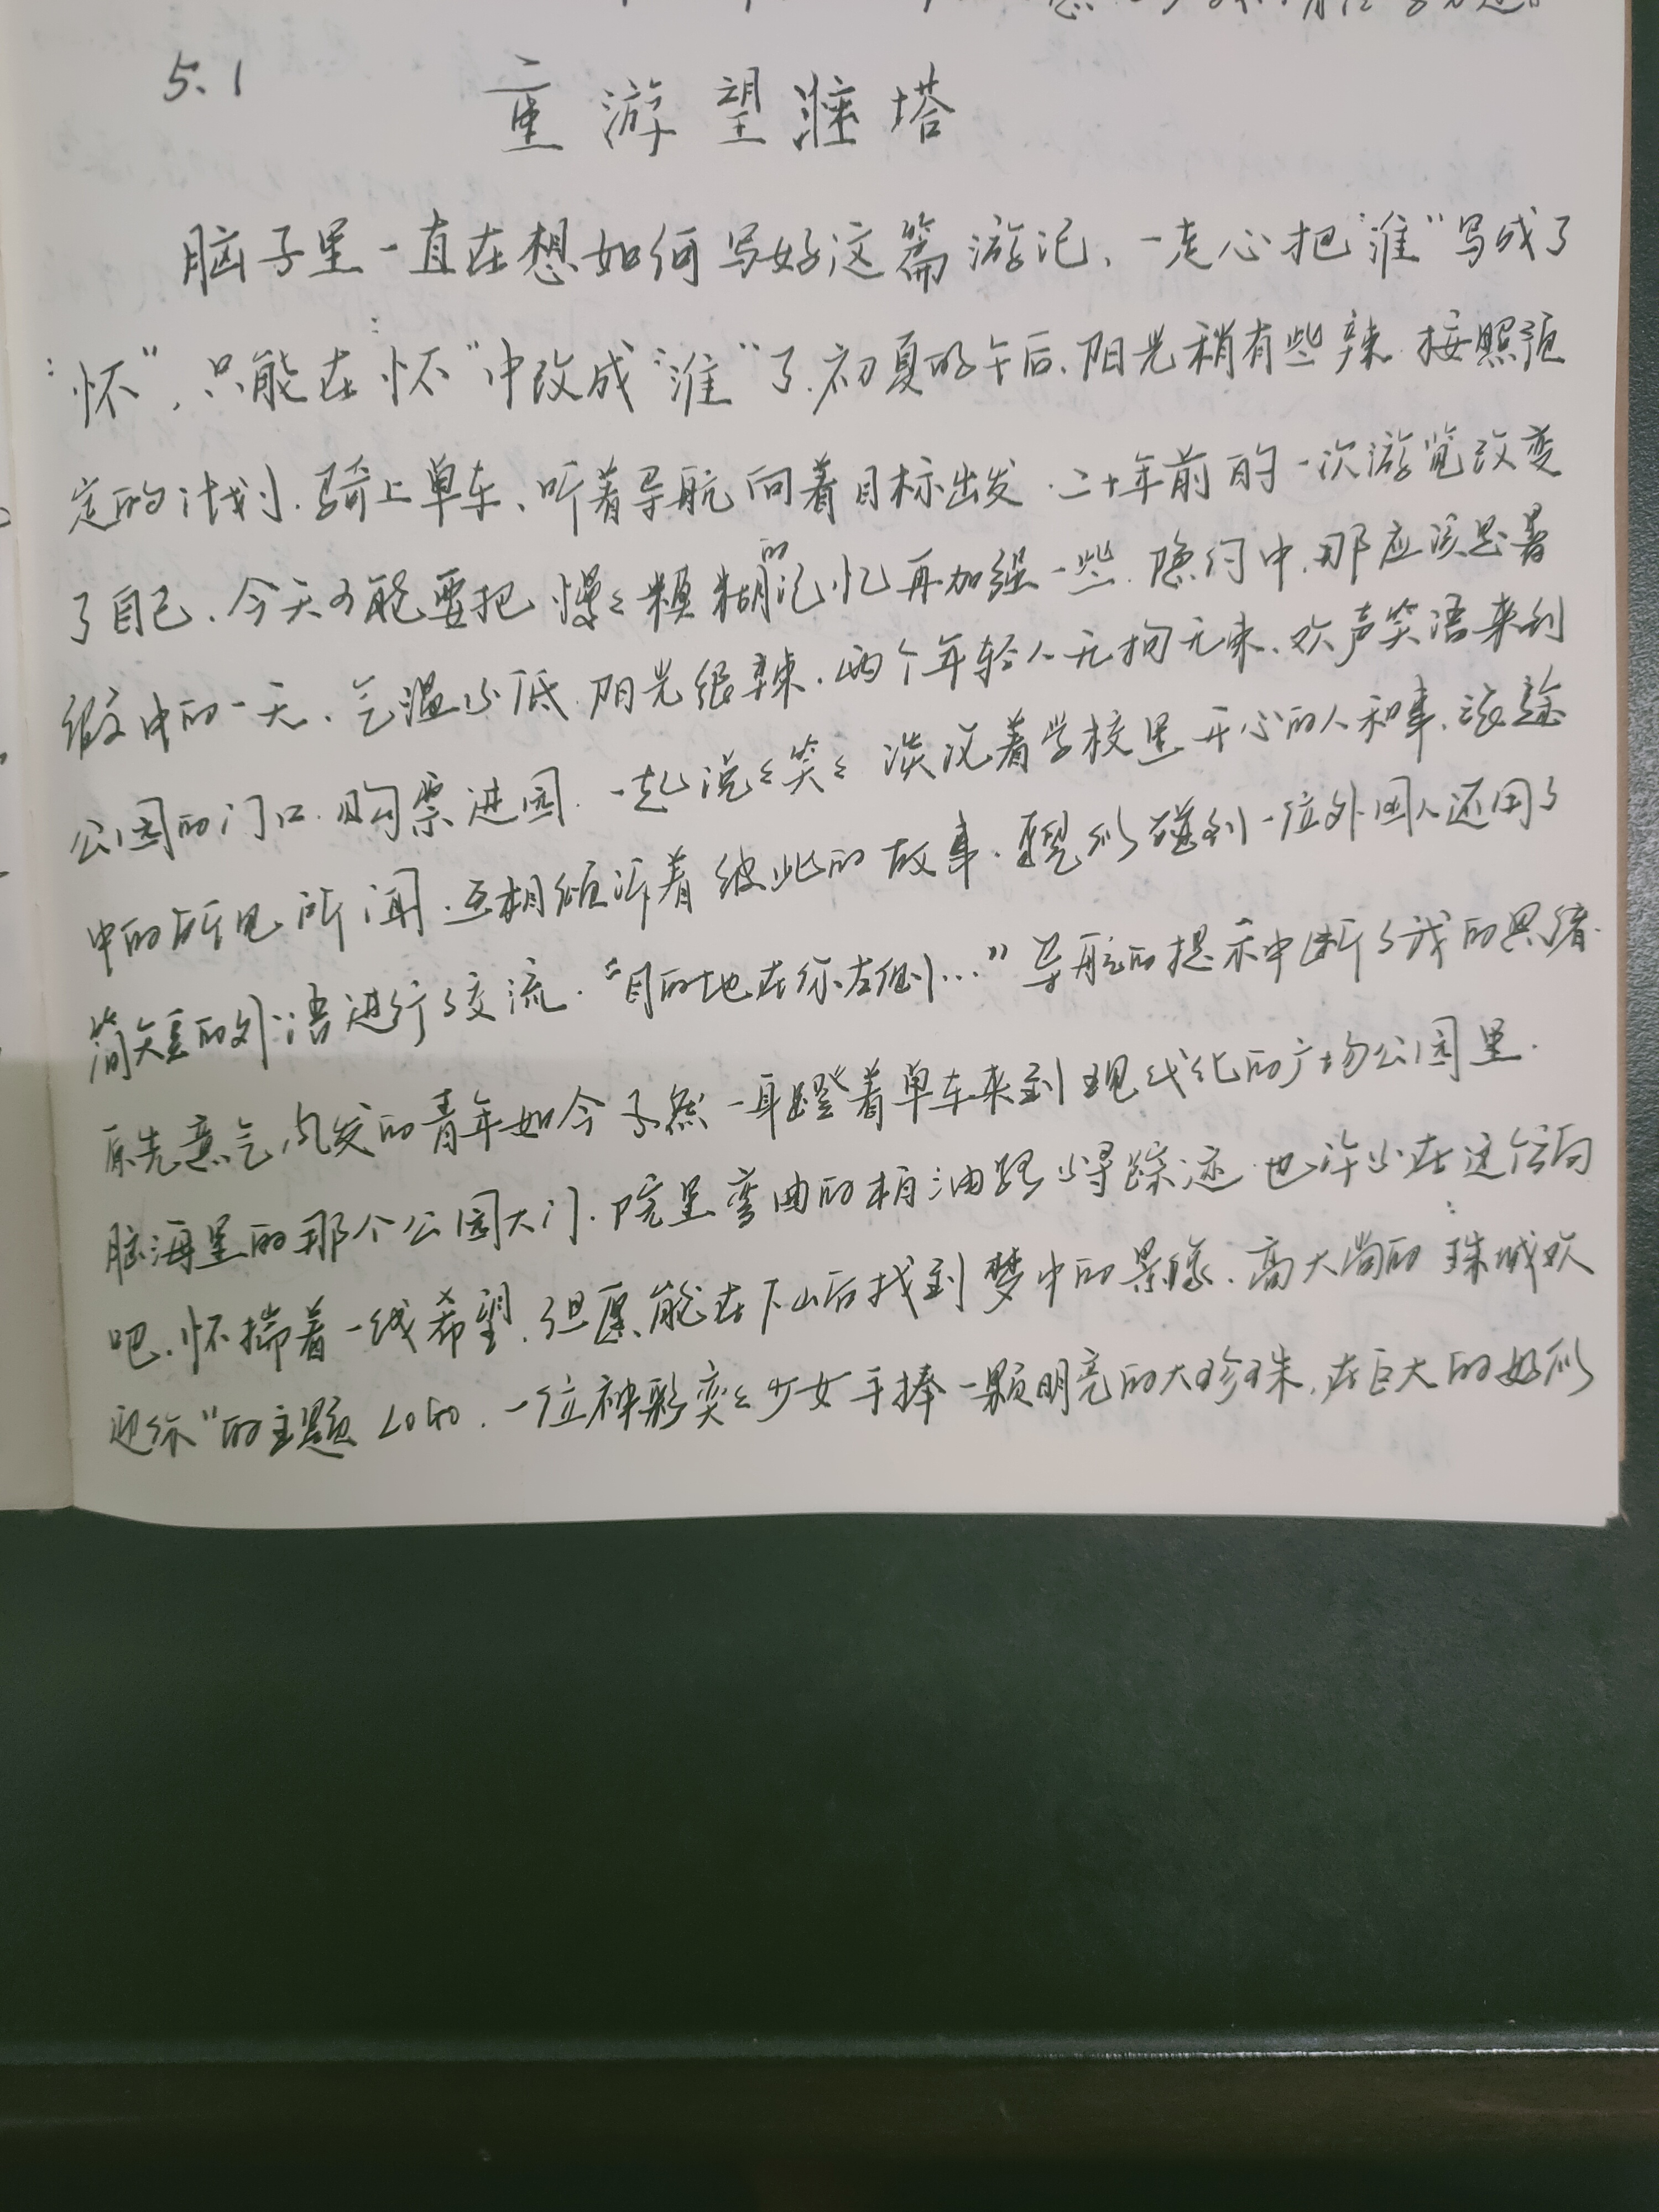 5.1 重游望淮塔
脑子里一直在想如何写好这篇游记、一走心把"淮"写成了
"怀",只能在"怀"中改成"淮"了.初夏的午后、阳光稍有些辣.按照预
定的计划.骑上单车、听着导航向着目标出发.二十年前的一次游览改变
了自己.今天可能要把慢慢模糊的记忆再加强一些.隐约中.那应该是暑
假中的一天、气温不低.阳光很辣.两个年轻人无拘无束、欢声笑语来到
公园的门口.购票进园.一起说说笑笑谈论着学校里开心的人和事.旅途
中的所见所闻.互相倾诉着彼此的故事.貌似碰到一位外国人还用了
简短的外语进行了交流."目的地在你左侧…"导航的提示中断了我的思绪.
原先意气风发的青年如今孑然一身蹬着单车来到现代化的广场公园里.
脑海里的那个公园大门.院里弯曲的柏油路不得踪迹.也许不在这个方向
吧.怀揣着一线希望.但愿能在下山后找到梦中的景像.高大尚的"珠城欢
迎你"的主题LOGO.一位神彩奕奕少女手捧一颗明亮的大珍珠,在巨大的好似